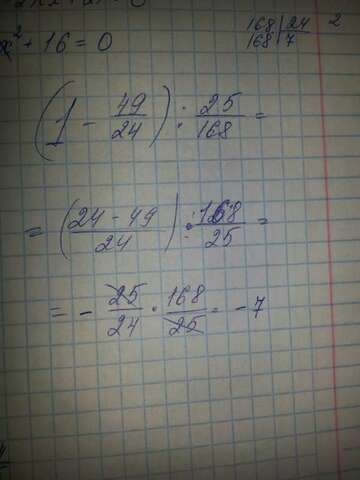 x² + 16 = 0
168 | 24
168 | 7
2
(1 - 49/24) : 25/168 =
= ((24 - 49)/24) · 168/25 =
= - 25/24 · 168/25 = -7